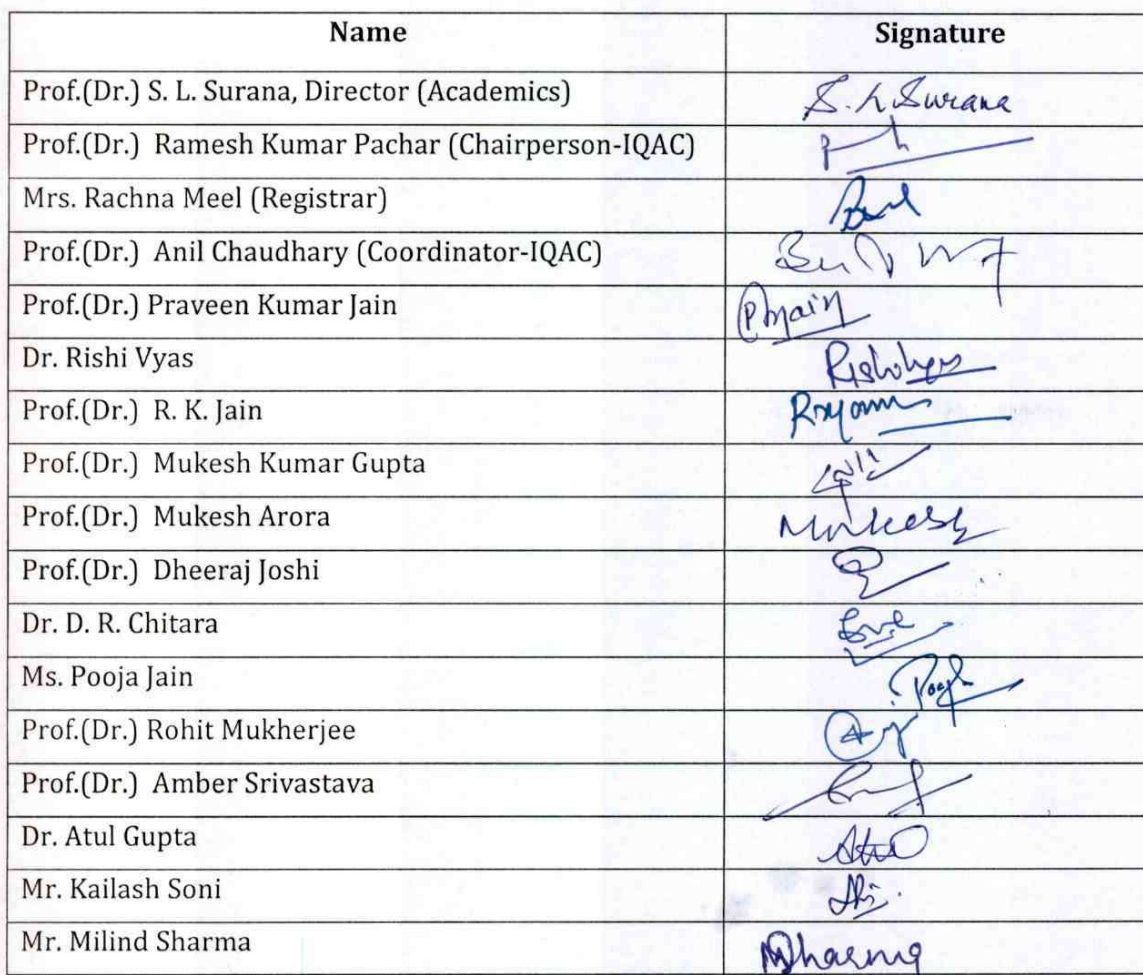 Name Signature
Prof.(Dr.) S. L. Surana, Director (Academics) S. L Surana
Prof.(Dr.) Ramesh Kumar Pachar (Chairperson-IQAC)
Mrs. Rachna Meel (Registrar)
Prof.(Dr.) Anil Chaudhary (Coordinator-IQAC)
Prof.(Dr.) Praveen Kumar Jain PKJain
Dr. Rishi Vyas
Prof.(Dr.) R. K. Jain
Prof.(Dr.) Mukesh Kumar Gupta
Prof.(Dr.) Mukesh Arora Mukesh
Prof.(Dr.) Dheeraj Joshi
Dr. D. R. Chitara
Ms. Pooja Jain
Prof.(Dr.) Rohit Mukherjee
Prof.(Dr.) Amber Srivastava
Dr. Atul Gupta Atul
Mr. Kailash Soni
Mr. Milind Sharma MSharma